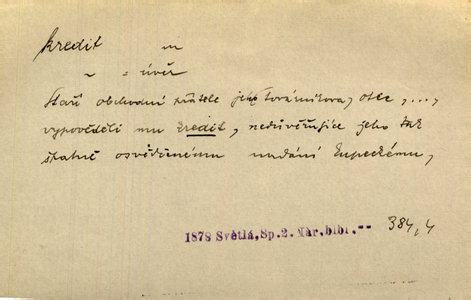 kredit m
~ = úvěr
Staří obchodní přátelé jeho továrníkova, otec, ...,
vypověděli mu kredit, nedůvěřujíce jeho tak
špatně osvědčenému nadání kupeckému,
1878 Světlá, Sp.2. Nár.bibl.--
384,4